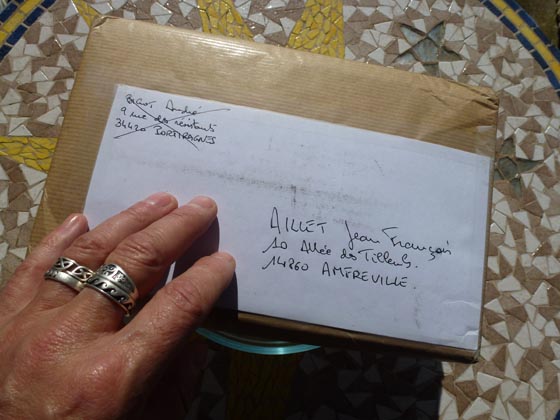 BIGOT André
9 rue des résistants
34420 PORTIRAGNES
AILLET Jean François
10 Allée des Tilleuls.
14860 AMFREVILLE.